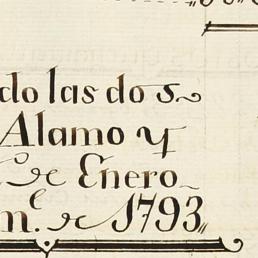 do las dos
Alamo y
de Enero
m.l de 1793,,